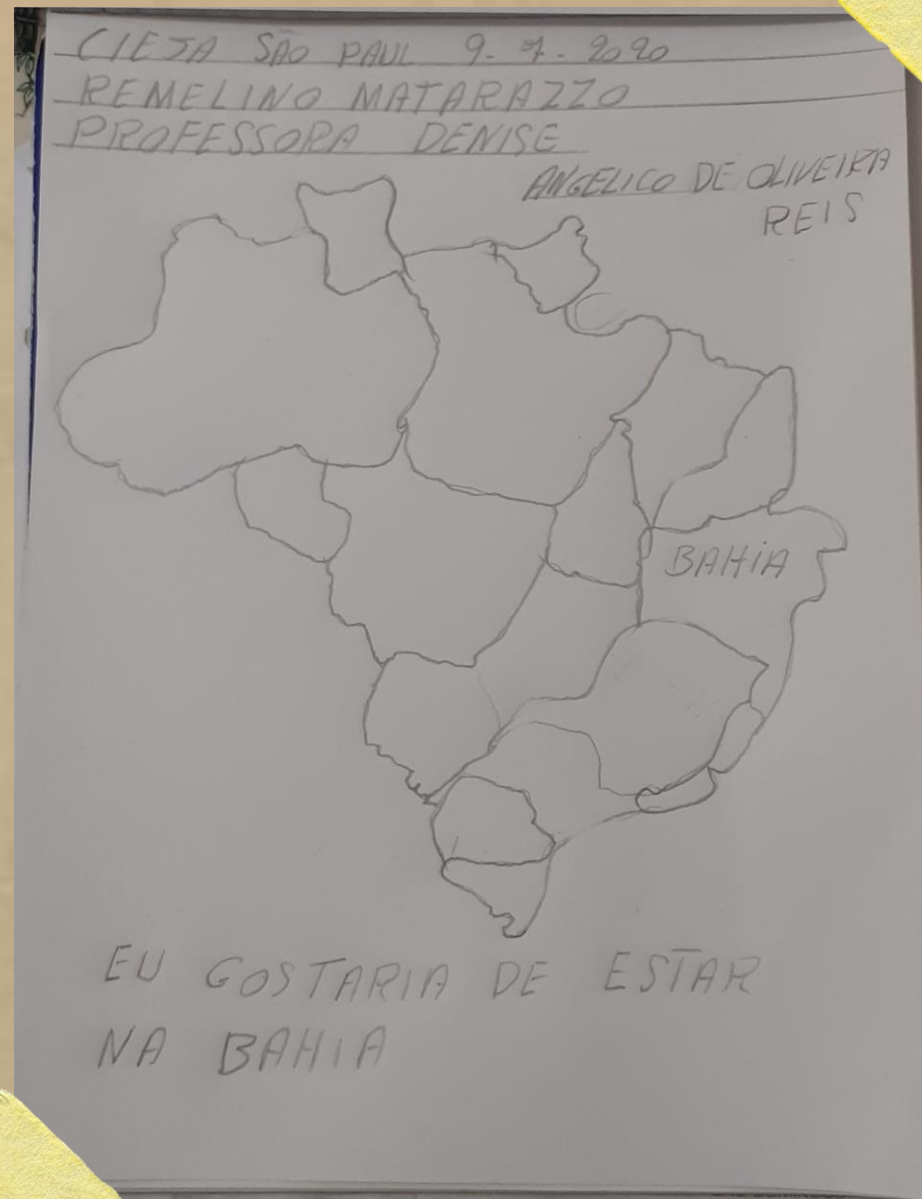 CIEJA SÃO PAUL 9-7-2020
REMELINO MATARAZZO
PROFESSORA DENISE
ANGELICO DE OLIVEIRA
REIS
BAHIA
EU GOSTARIA DE ESTAR
NA BAHIA